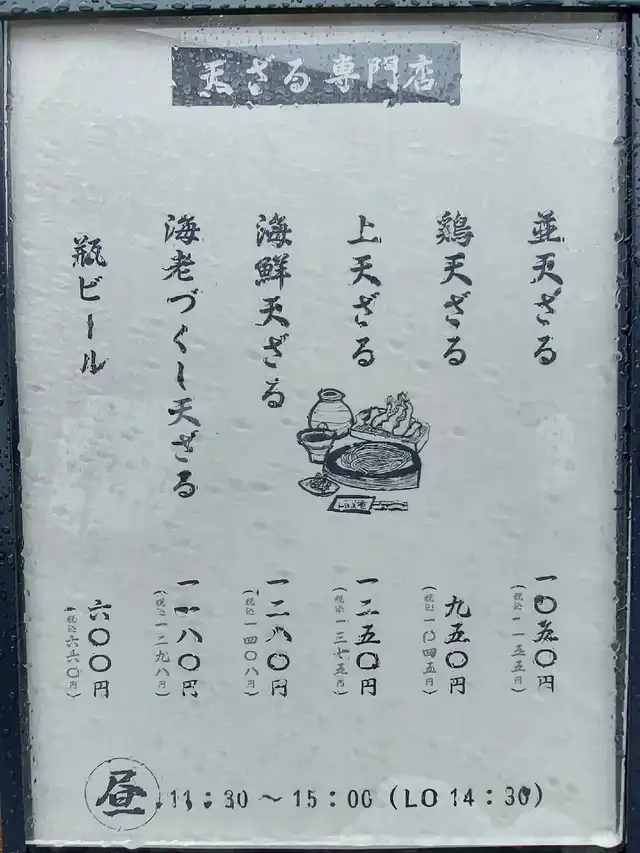 天ざる専門店
並天ざる
一〇五〇円
(税込一一五五円)
鶏天ざる
九五〇円
(税込一〇四五円)
上天ざる
一二五〇円
(税込一三七五円)
海鮮天ざる
一二八〇円
(税込一四〇八円)
海老づくし天ざる
一一八〇円
(税込一二九八円)
瓶ビール
六〇〇円
(税込六六〇円)
昼 11:30～15:00(LO 14:30)